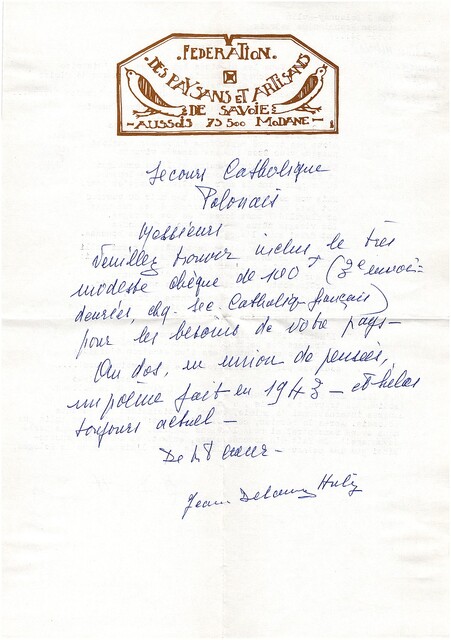 .FEDERATION.
.DES PAYSANS ET ARTISANS
DE SAVOIE
-AUSSOIS 73500 MODANE-
Secours Catholique
Polonais
Messieurs
Veuillez trouver inclus le très
modeste chèque de 100F (3e envoi-
denrées, chq. Sec. Catholiq. français)
pour les besoins de votre pays-
Au dos, en union de pensées,
un poème fait en 1943 - et hélas
toujours actuel -
De tt cœur -
Jean